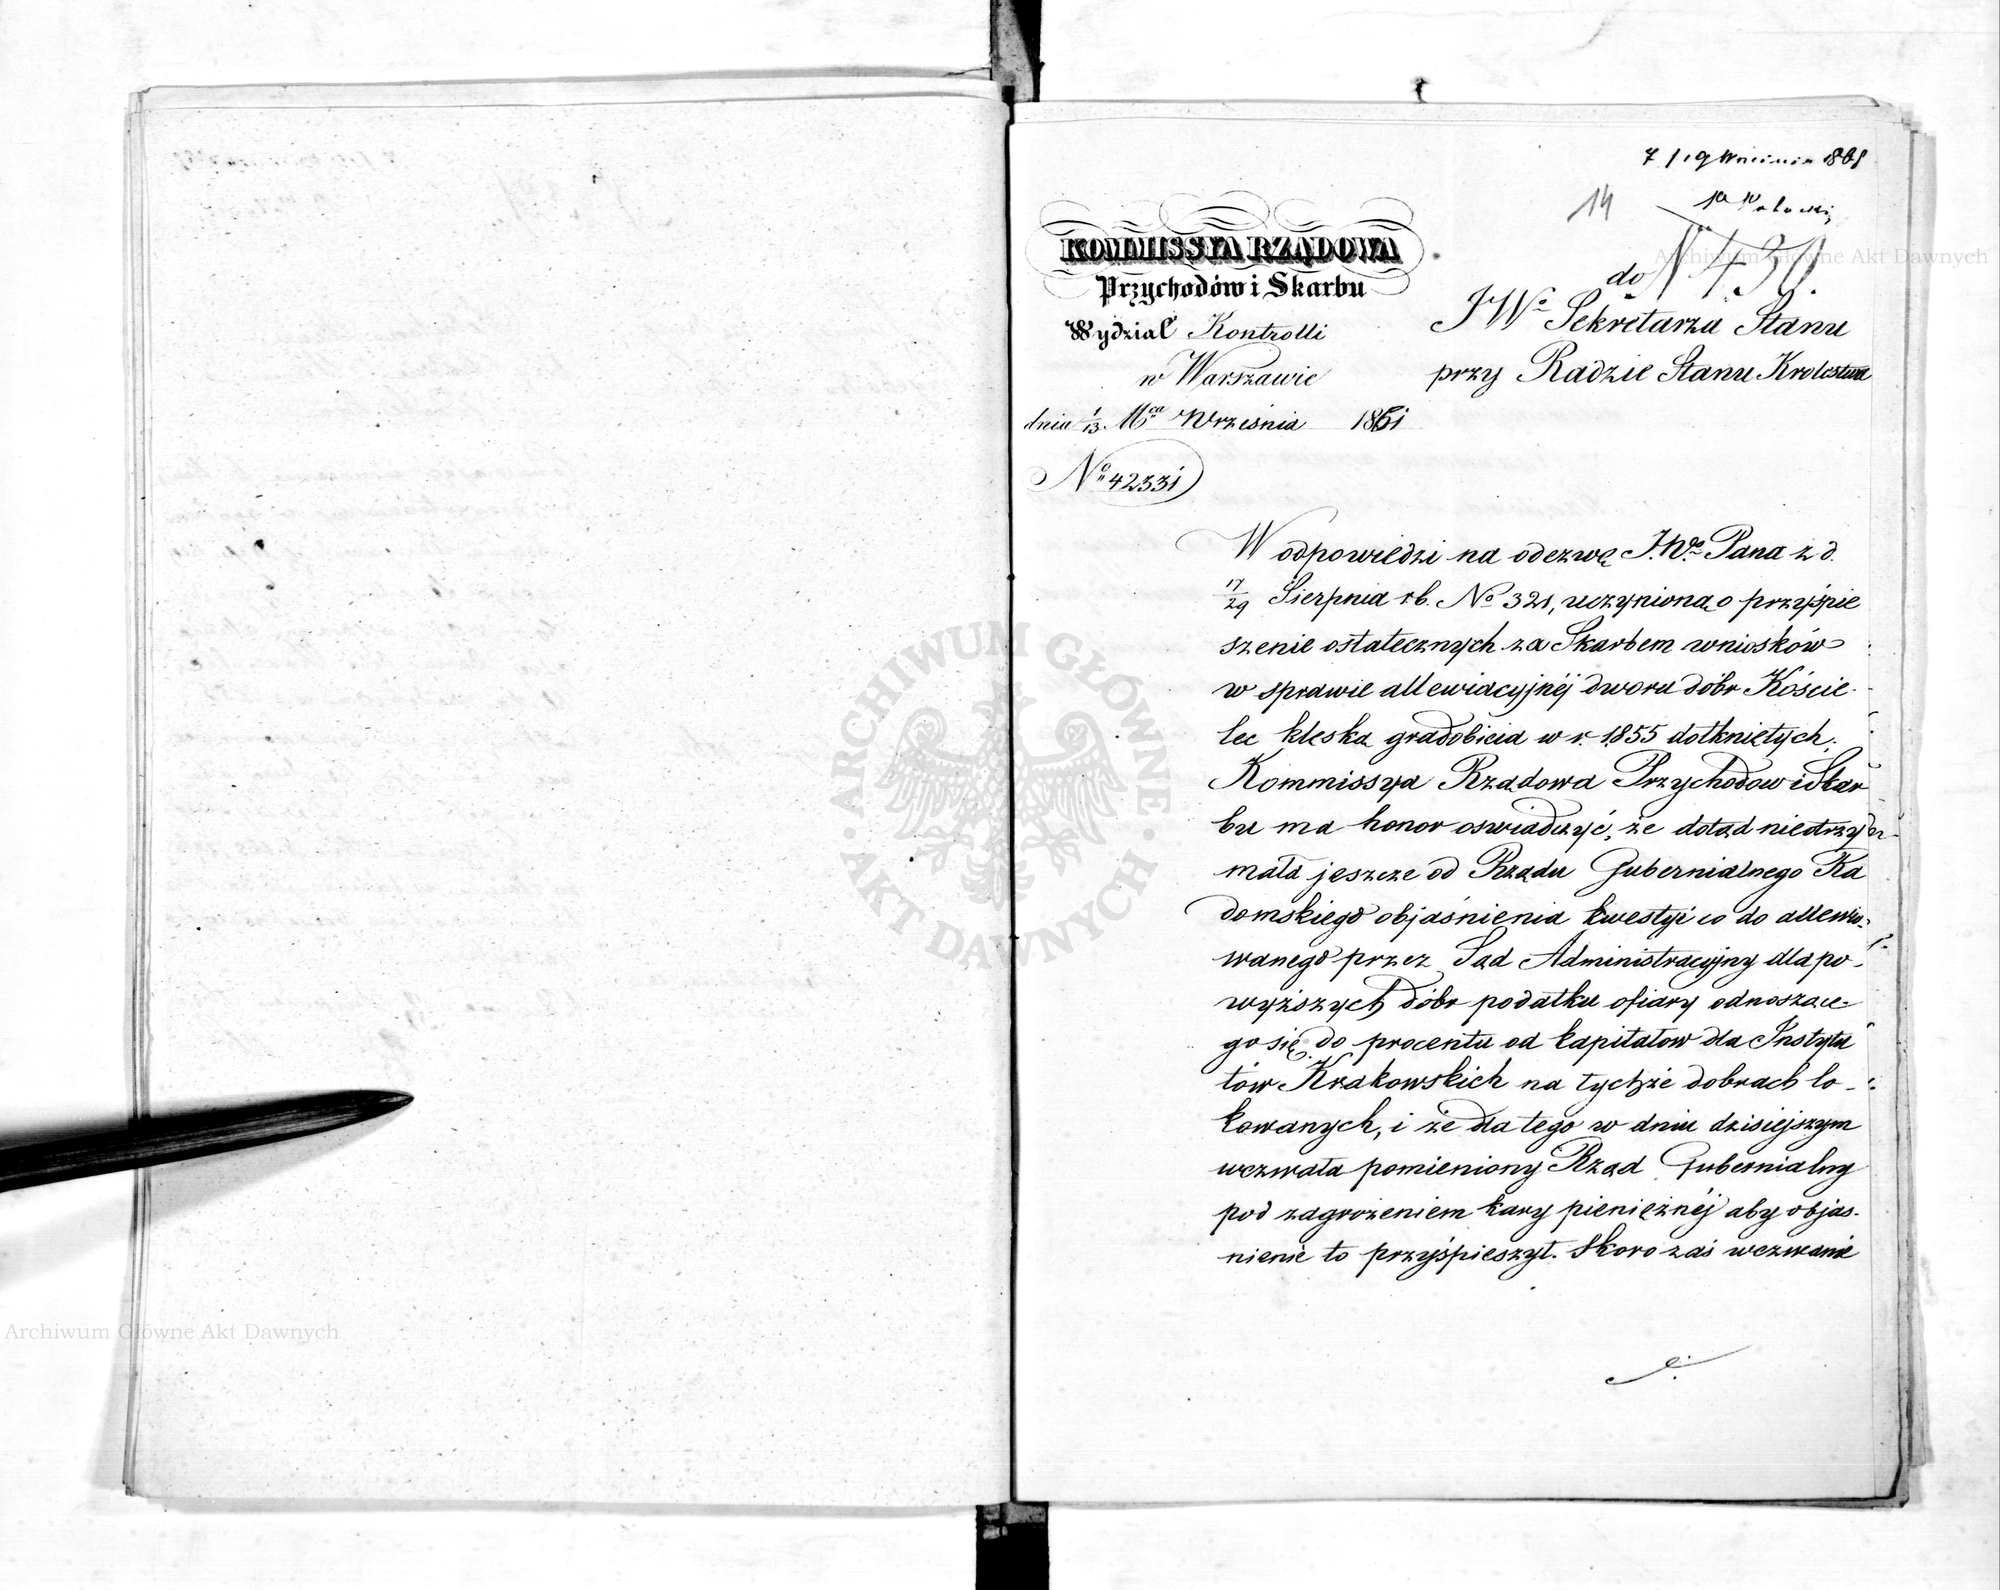 7/19 Września 1861
14
N 430.
KOMMISSYA RZĄDOWA
Przychodów i Skarbu
Wydział Kontrolli
w Warszawie
dnia 1/13 Mca Września 1861
No 42331
do
JWo Sekretarza Stanu
przy Radzie Stanu Krolestwa
W odpowiedzi na odezwę J.Wgo Pana z d.
17/29 Sierpnia rb. No 321, uczynioną o przyśpie
szenie ostatecznych za Skarbem wniosków
w sprawie allewiacyjnéj dworu dóbr Koście-
lec klęską gradobicia w r. 1855 dotkniętych.
Kommissya Rządowa Przychodow i Skar
bu ma honor oswiadczyć, że dotąd nieotrzy
mała jeszcze od Rządu Gubernialnego Ra
domskiego objaśnienia kwestyi co do allewio-
wanego przez Sąd Administracyjny dla po-
wyższych dóbr podatku ofiary odnoszące-
go się do procentu od kapitałow dla Instytu
tów Krakowskich na tychże dobrach lo-
kowanych, i że dla tego w dniu dzisiejszym
wezwała pomieniony Rząd Gubernialny
pod zagrożeniem kary pieniężnéj aby objaś-
nienie to przyśpieszył. Skoro zaś wezwanie
ARCHIWUM GŁÓWNE AKT DAWNYCH
Archiwum Główne Akt Dawnych
Archiwum Główne Akt Dawnych